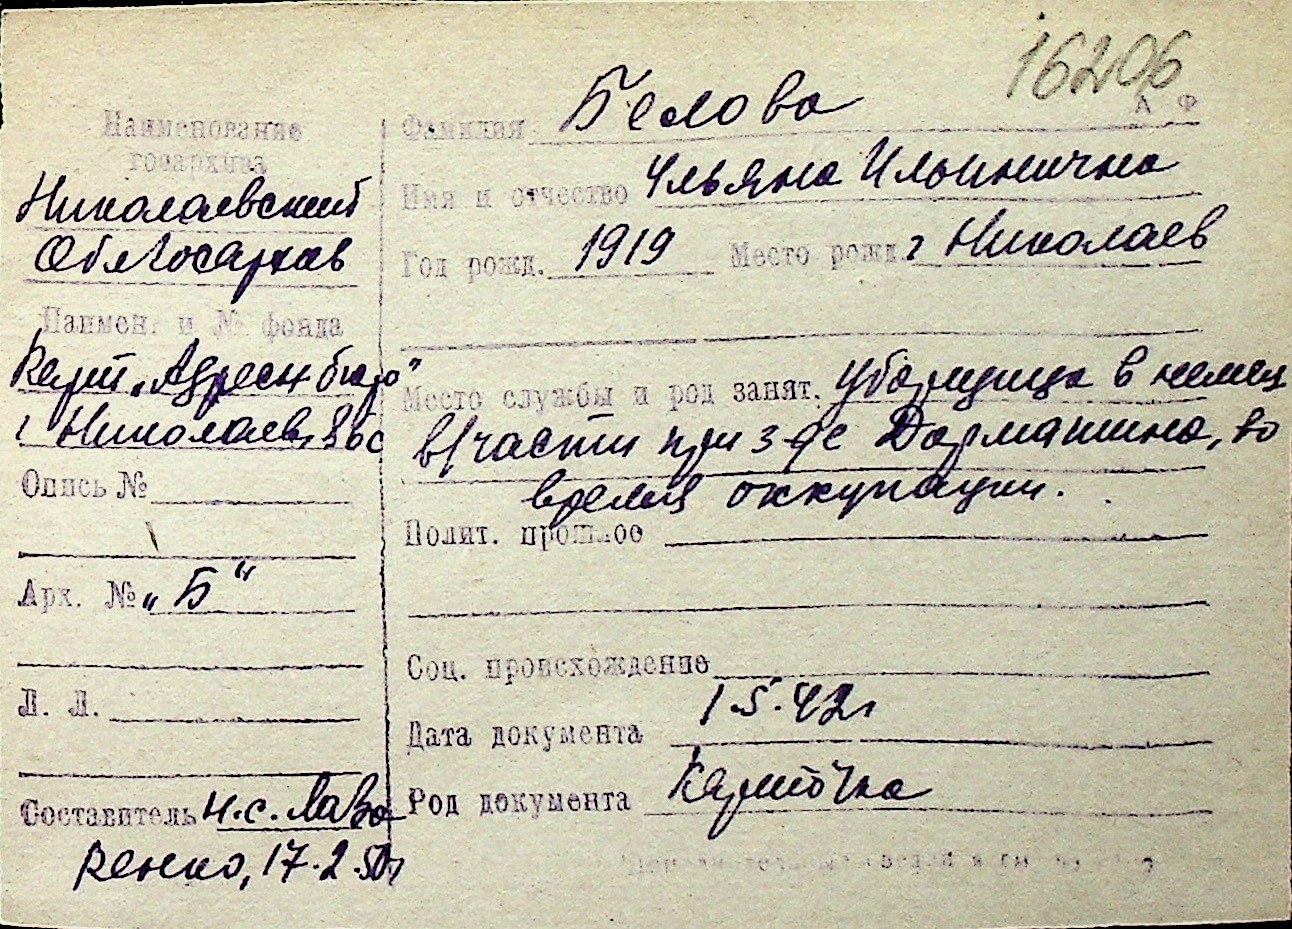 16206
А Ф
Наименование
госархива
Николаевский
Облгосархив
Наимен. и № фонда
Карт „Адресн бюро"
г Николаев,
Опись №
Арх. № „Б"
Л. Л.
Составитель н.с. Лаза
ренко, 17.2.50г
Фамилия Белова
Имя и отчество Ульяна Ильинична
Год рожд. 1919 Место рожд. г Николаев
Место службы и род занят. уборщица в немец
в/части при з-де Дормашина, во
время оккупации.
Полит. прошлое
Соц. происхождение
Дата документа 1.5.42г
Род документа Карточка